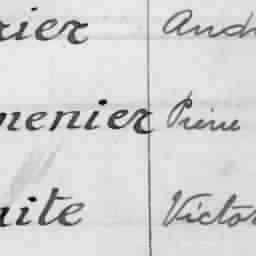 rier Andr
menier Pierre
uite Victor